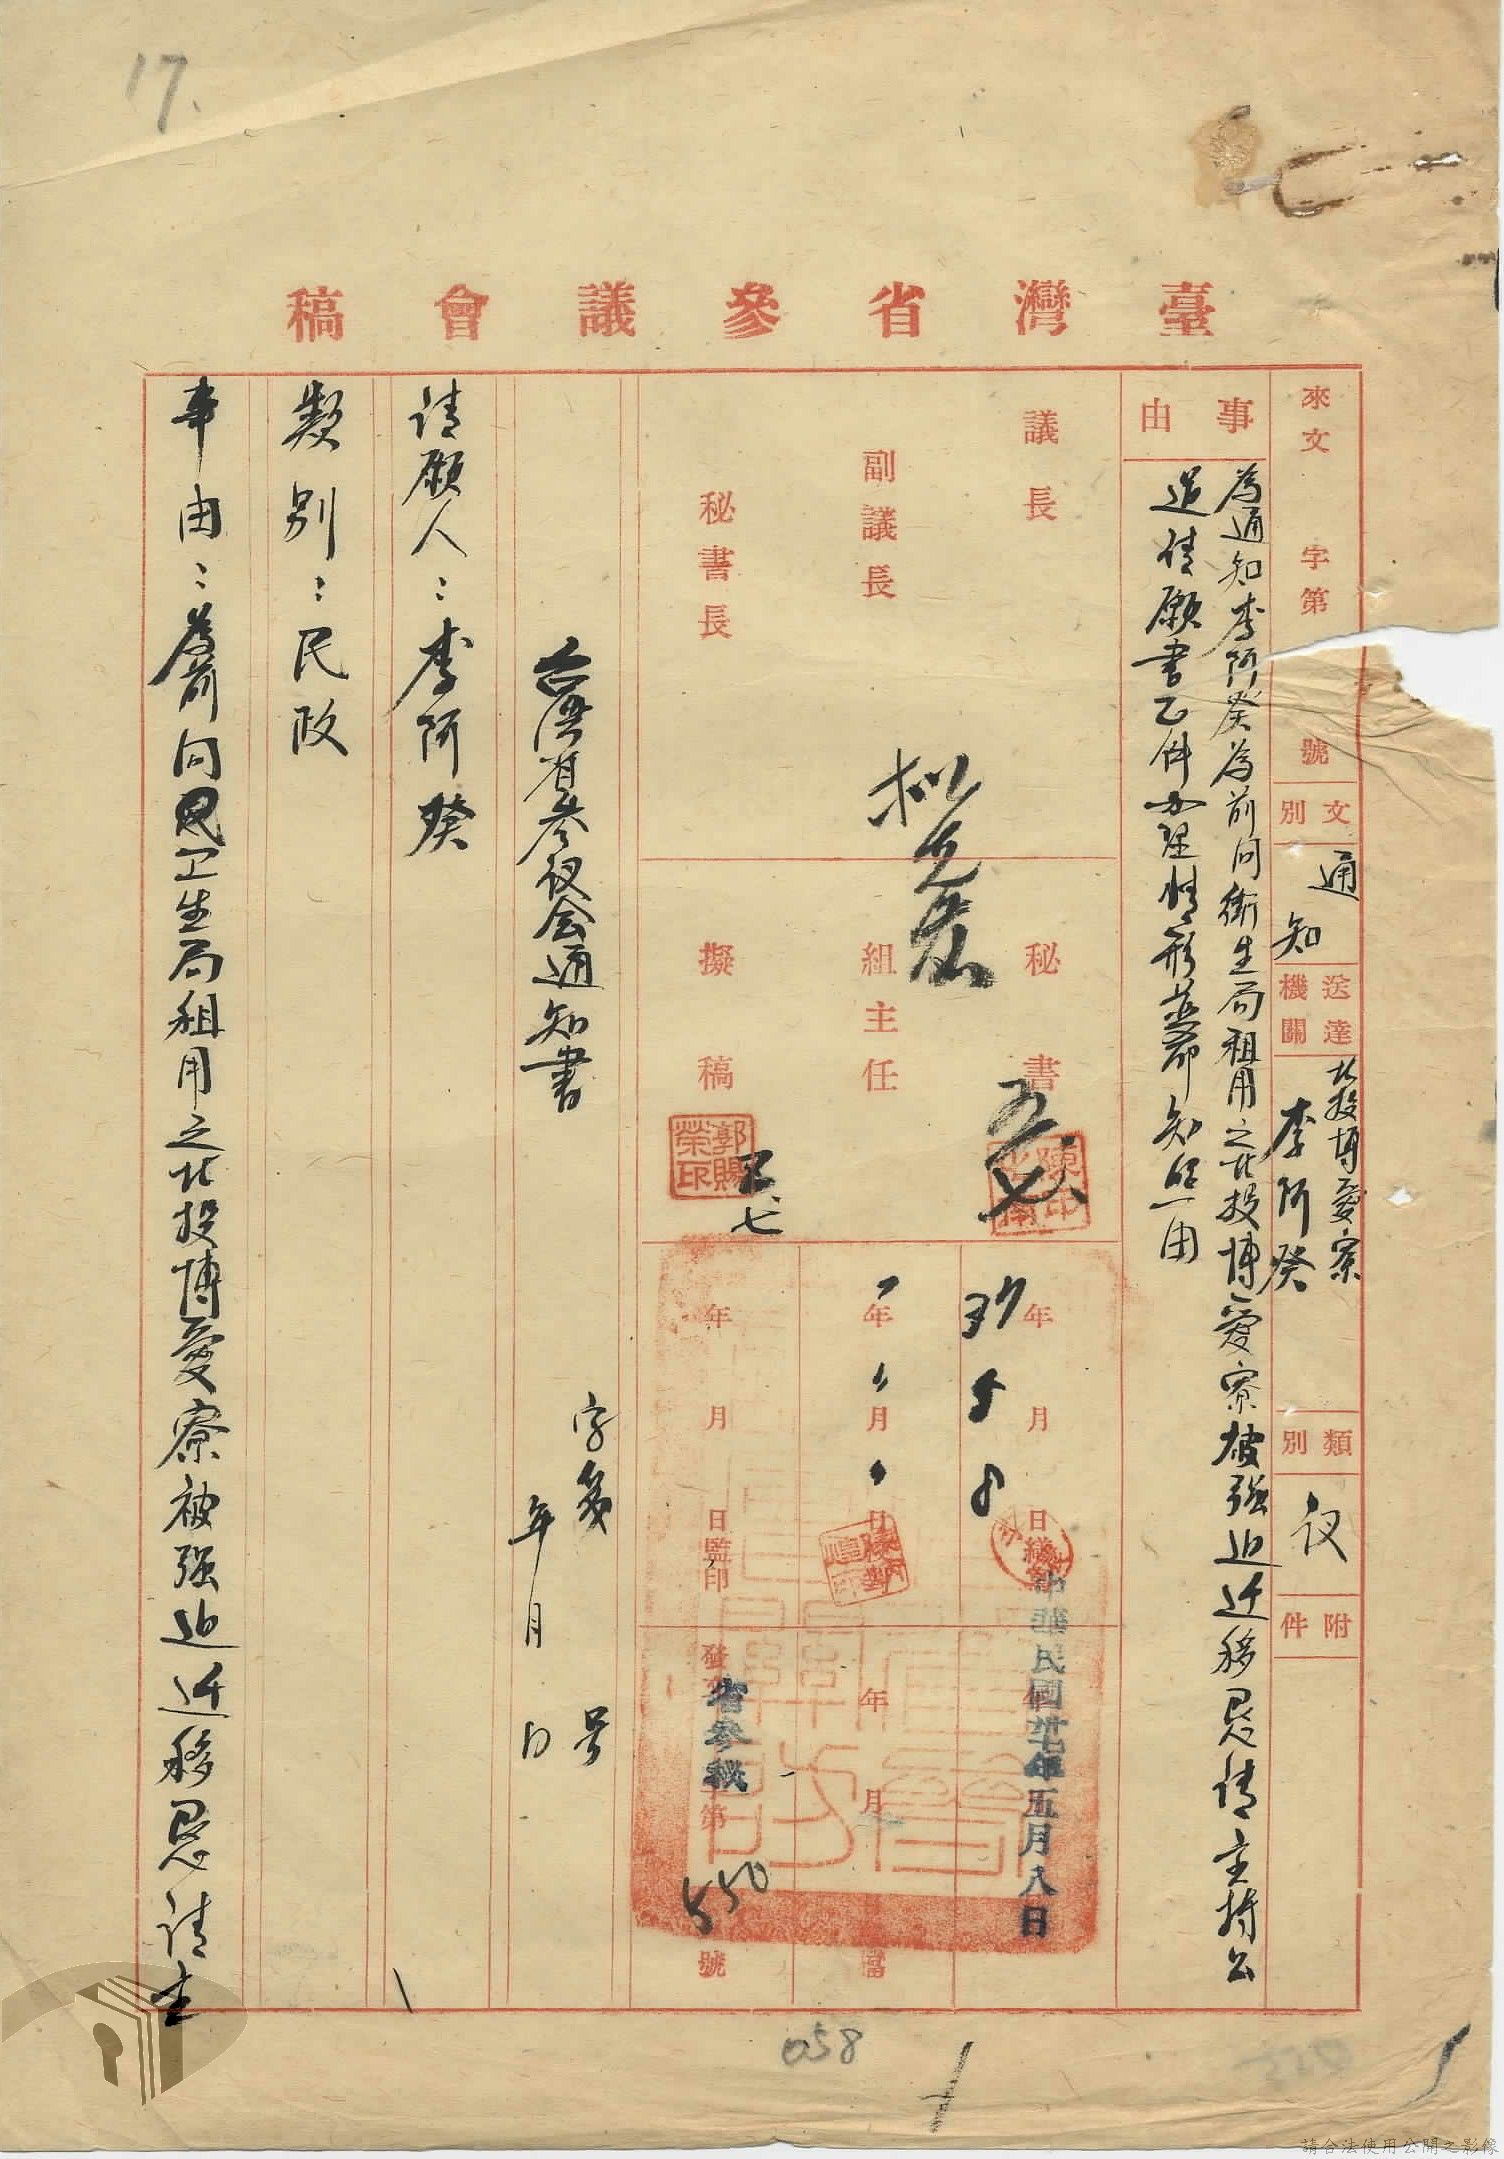 17.
臺灣省參議會稿
來文 字第 號
文別 通知
送達機關 北投博愛寮 李阿癸
類別 议
附件
事由
為通知李阿癸為前向衛生局租用之北投博愛寮被强迫迁移恳請主持公
道請願書乙件办理情形並希知照由
議長
副議長
秘書長
秘書
組主任
擬稿
五、七
五、七
郭賜榮印
37年5月8日繕
年月日
年月日監印
中華民國卅七年五月八日
年月
檔
發文省參秘字第550號
台湾省參议会通知書
字第 号
年月日
请願人：李阿癸
類別：民政
事由：為前向卫生局租用之北投博愛寮被强迫迁移恳请主
058
請合法使用公開之影像